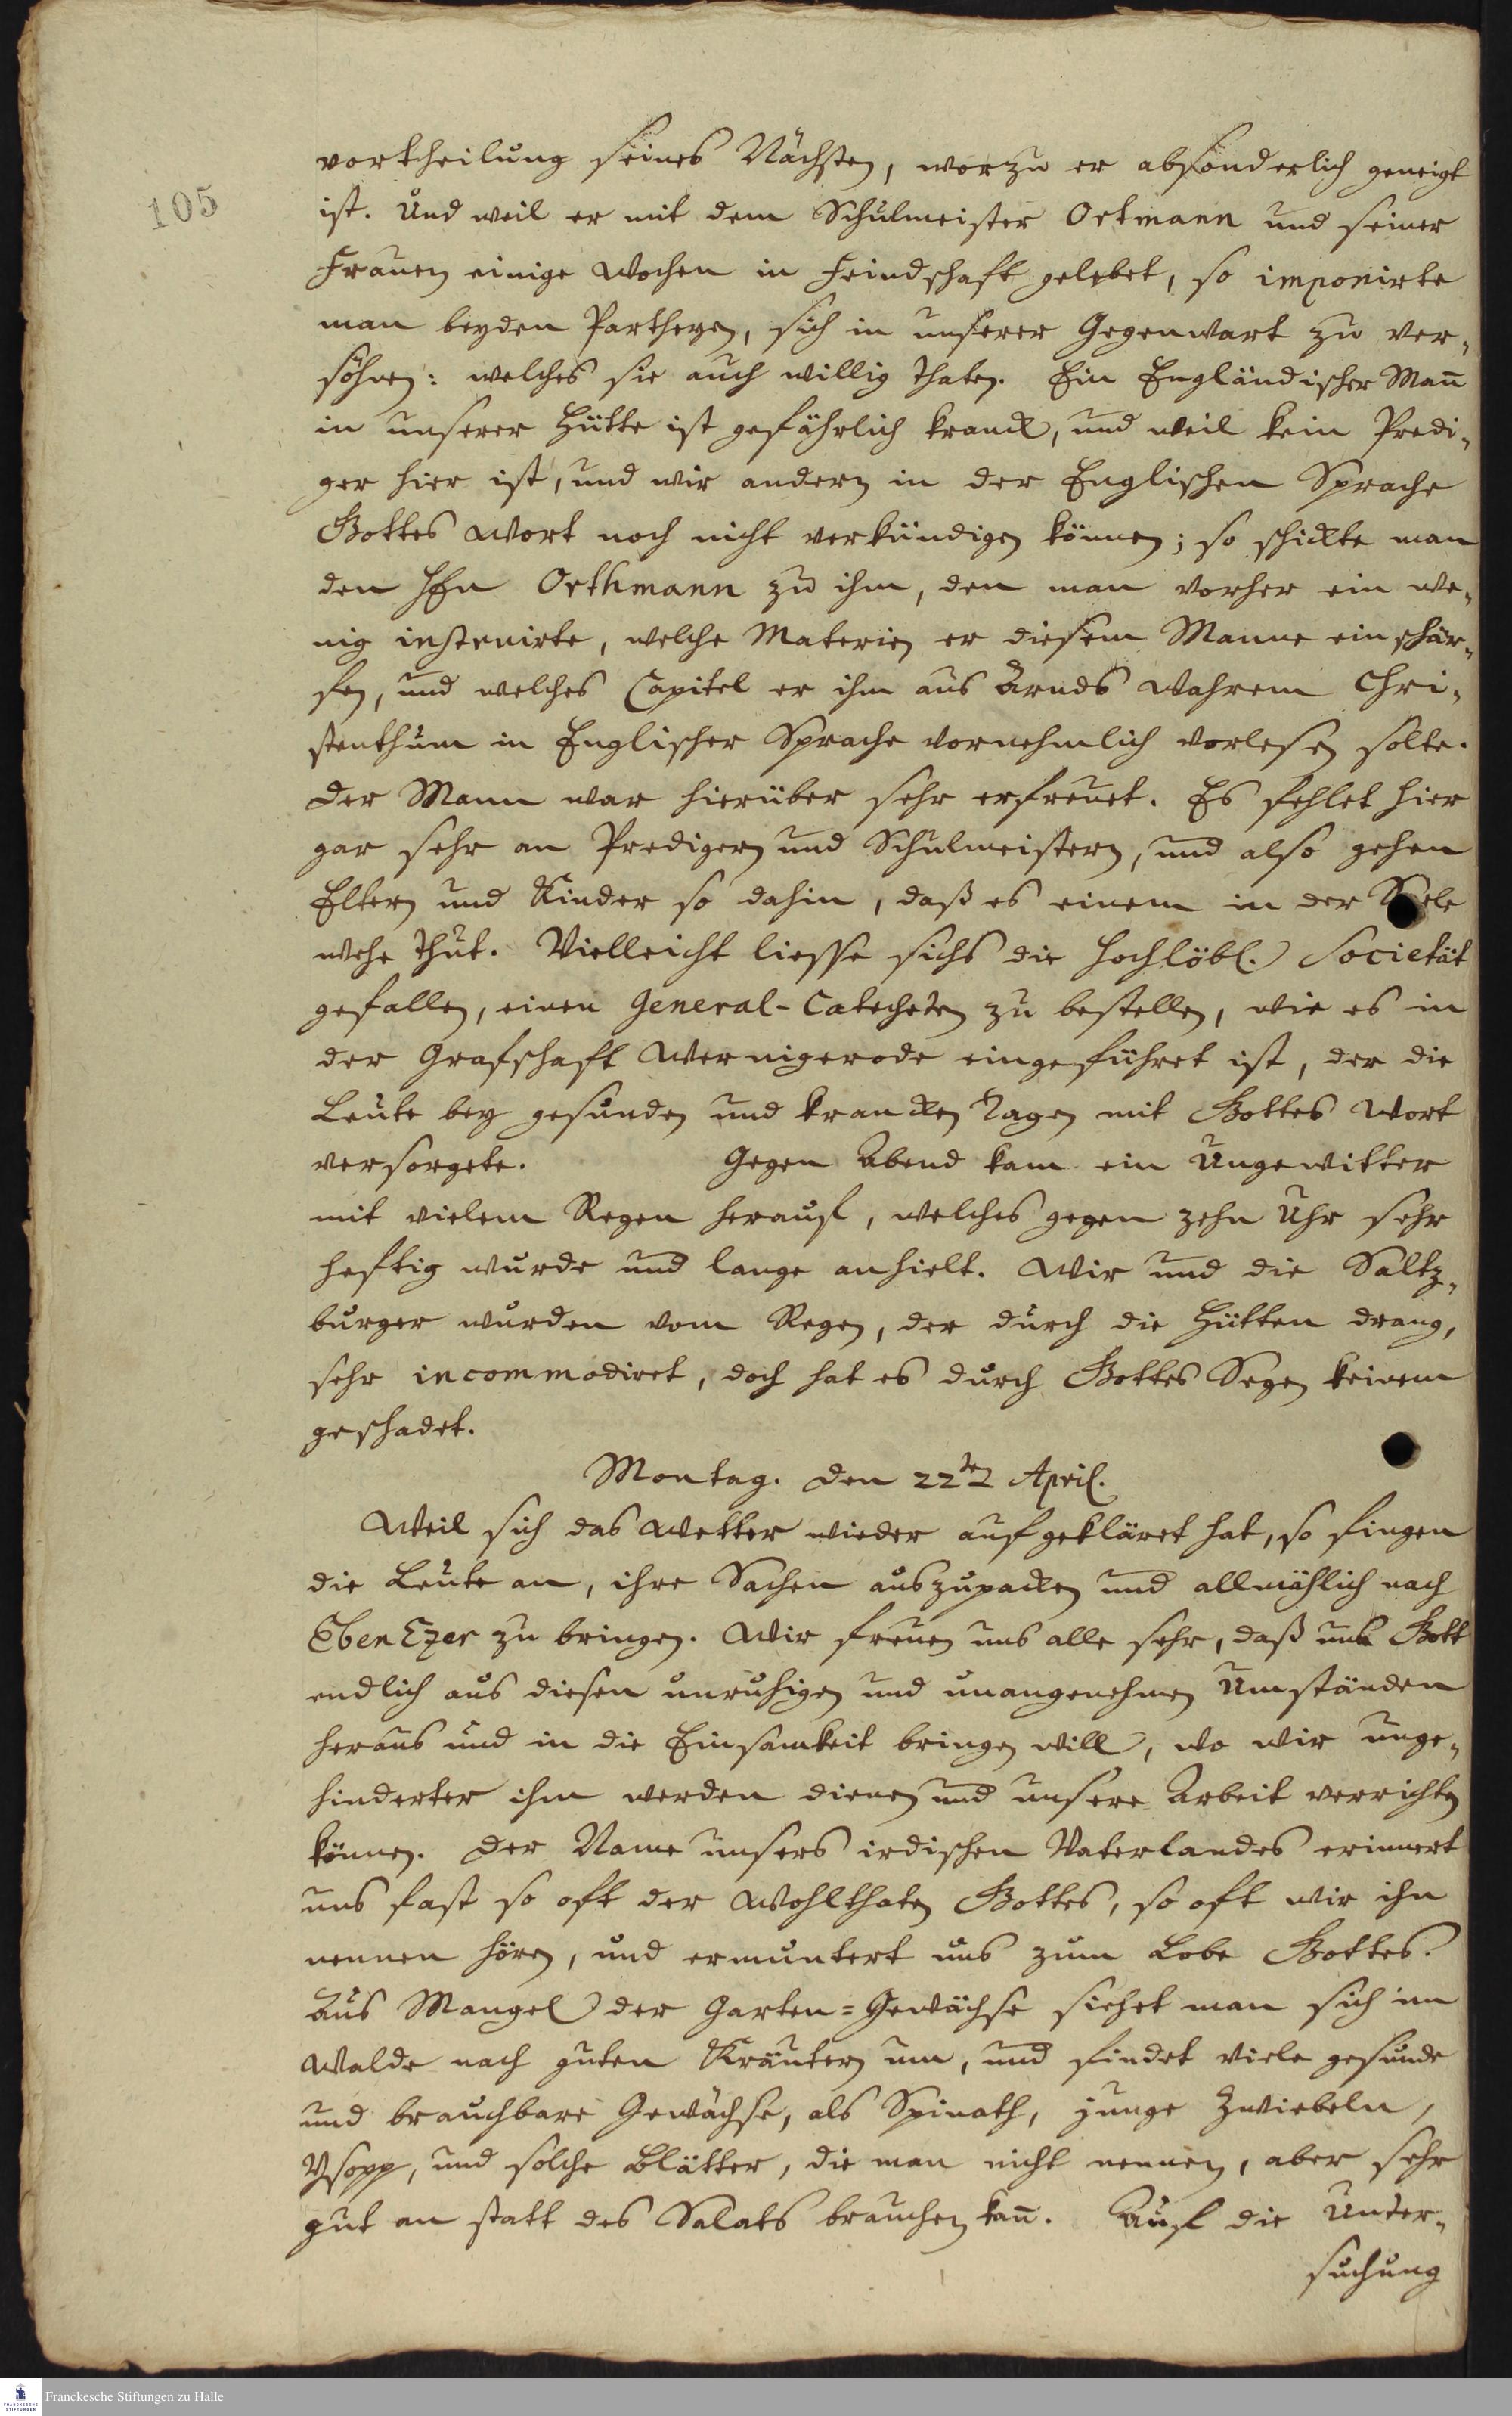 105
vortheilung seines Nächsten, worzu er absonderlich geneigt
ist. Und weil er mit dem Schulmeister Ortmann und seiner
Frauen einige Wochen in Feindschaft gelebet, so imponirte
man beyden Partheyen, sich in unserer Gegenwart zu ver-
söhnen: welches sie auch willig thaten. Ein Engländischer Mañ
in unserer Hütte ist gefährlich kranck, und weil kein Predi-
ger hier ist, und wir andern in der Englischen Sprache
Gottes Wort noch nicht verkündigen können; so schickte man
den HEn Orthmann zu ihm, den man vorher ein we-
nig instruirte, welche Materien er diesem Manne einschär-
fen, und welches Capitel er ihm aus Arnds Wahrem Chri-
stenthum in Englischer Sprache vornehmlich vorlesen solte.
Der Mann war hierüber sehr erfreuet. Es fehlet hier
gar sehr an Predigern und Schulmeistern, und also gehen
Eltern und Kinder so dahin, daß es einem in der Seele
wehe thut. Vielleicht liesse sichs die Hochlöbl. Societät
gefallen, einen General-Catecheten zu bestellen, wie es in
der Grafschaft Wernigerode eingeführet ist, der die
Leute bey gesunden und krancken Tagen mit Gottes Wort
versorgete. Gegen Abend kam ein Ungewitter
mit vielem Regen herauf, welches gegen zehn Uhr sehr
heftig wurde und lange anhielt. Wir und die Saltz-
burger wurden vom Regen, der durch die Hütten drang,
sehr incommodiret, doch hat es durch Gottes Segen keinem
geschadet.
Montag. den 22ten April.
Weil sich das Wetter wieder aufgekläret hat, so fingen
die Leute an, ihre Sachen auszupacken und allmählich nach
EbenEzer zu bringen. Wir freuen uns alle sehr, daß uns Gott
endlich aus diesen unruhigen und unangenehmen Umständen
heraus und in die Einsamkeit bringen will, wo wir unge-
hinderter ihm werden dienen und unsere Arbeit verrichten
können. Der Name unsers irdischen Vaterlandes erinnert
uns fast so oft der Wohlthaten Gottes, so oft wir ihn
nennen hören, und ermuntert uns zum Lobe Gottes.
Aus Mangel der Garten=Gewächse siehet man sich im
Walde nach guten Kräutern um, und findet viele gesunde
und brauchbare Gewächse, als Spinath, junge Zwiebeln,
Ysopp, und solche Blätter, die man nicht nennen, aber sehr
gut an statt des Salats brauchen kañ. Auf die Unter-
suchung
Franckesche Stiftungen zu Halle